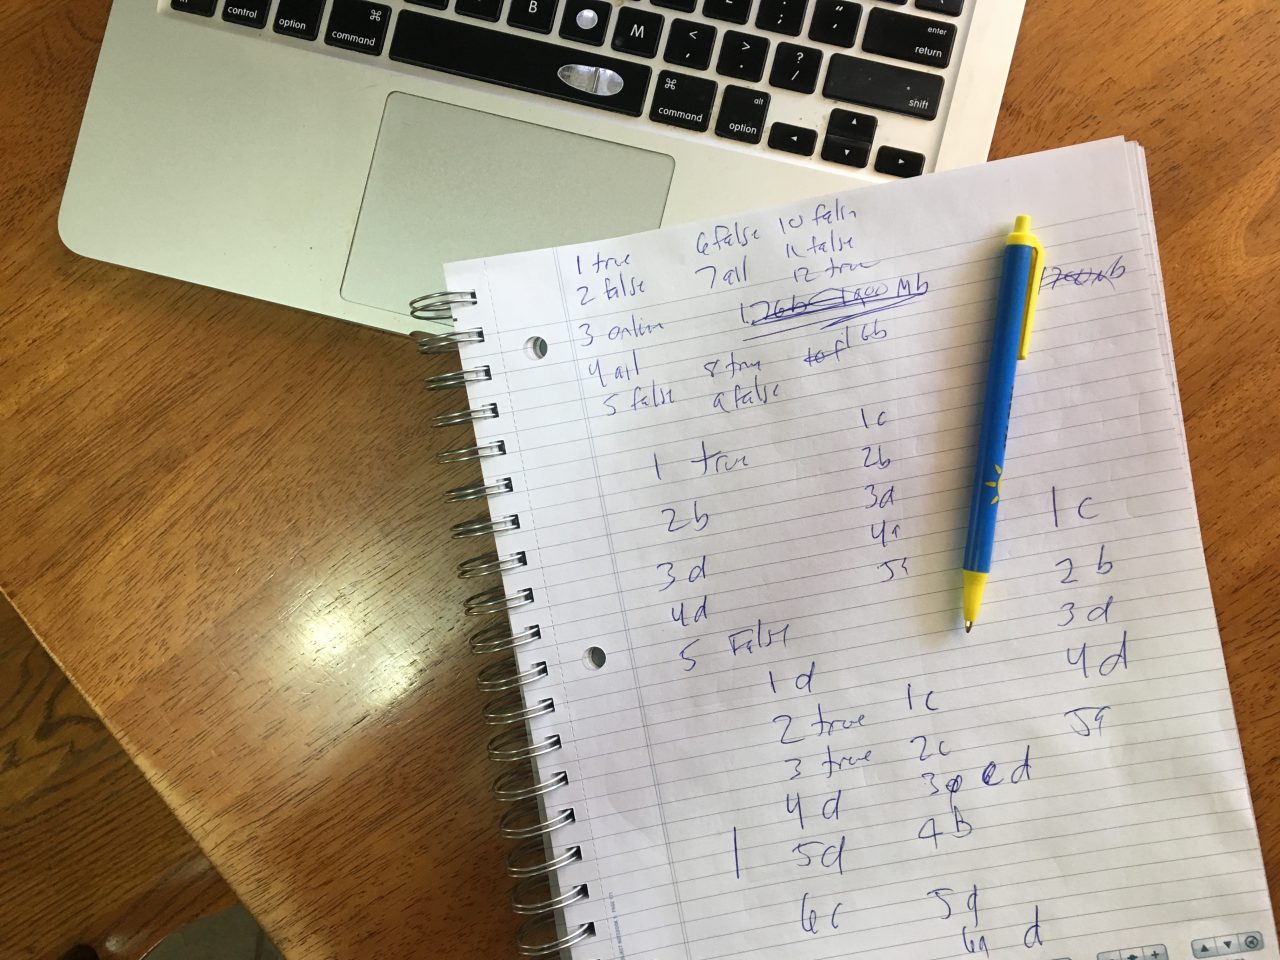 control
option
command
B
M
<
,
>
.
?
/
:
;
"
'
enter
return
shift
command
alt
option
1 true 6 false 10 false
2 false 7 all 11 false
3 online 12 true
4 all 8 true 1 Gb
5 false 9 false
1 true
2 b
3 d
4 d
5 False
1 c
2 b
3 d
4 a
5 a
1 c
2 b
3 d
4 d
5 a
1 d
2 true
3 true
4 d
5 d
6 c
1 c
2 c
3 d
4 B
6 a d